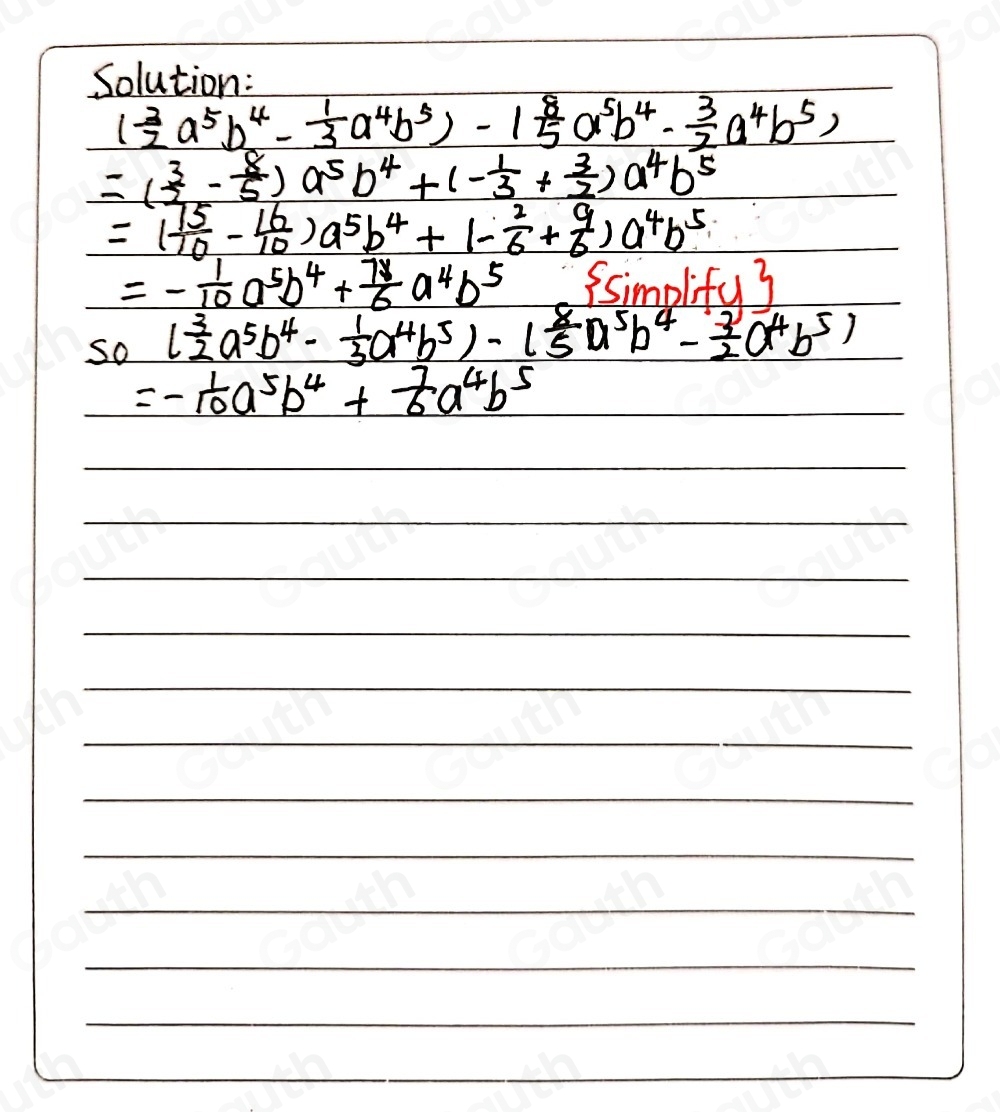 Solution:
(3/2 a⁵b⁴ - 1/3 a⁴b⁵) - (8/5 a⁵b⁴ - 3/2 a⁴b⁵)
= (3/2 - 8/5) a⁵b⁴ + (-1/3 + 3/2) a⁴b⁵
= (15/10 - 16/10) a⁵b⁴ + (-2/6 + 9/6) a⁴b⁵
= - 1/10 a⁵b⁴ + /6 a⁴b⁵ {Simplify}
so (3/2 a⁵b⁴ - 1/3 a⁴b⁵) - (8/5 a⁵b⁴ - 3/2 a⁴b⁵)
= - 1/10 a⁵b⁴ + 7/6 a⁴b⁵